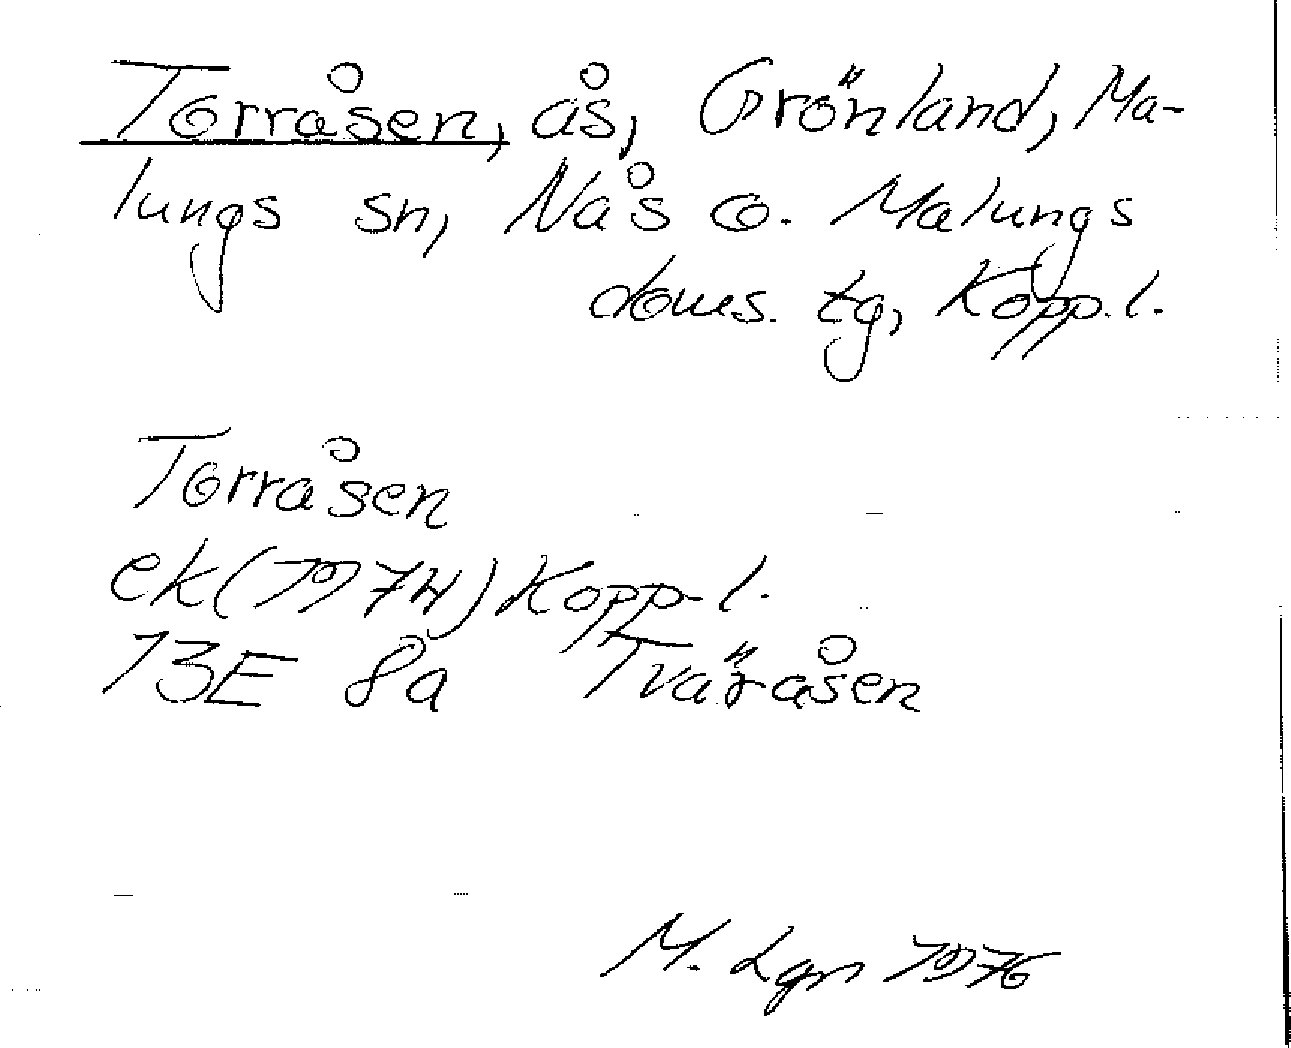 Torråsen, ås, Grönland, Ma-
lungs sn, Nås o. Malungs
doms. tg, Kopp. l.
Torråsen
ek (1974) Kopp. l.
13E 8a Tväråsen
M. Lgn 1976